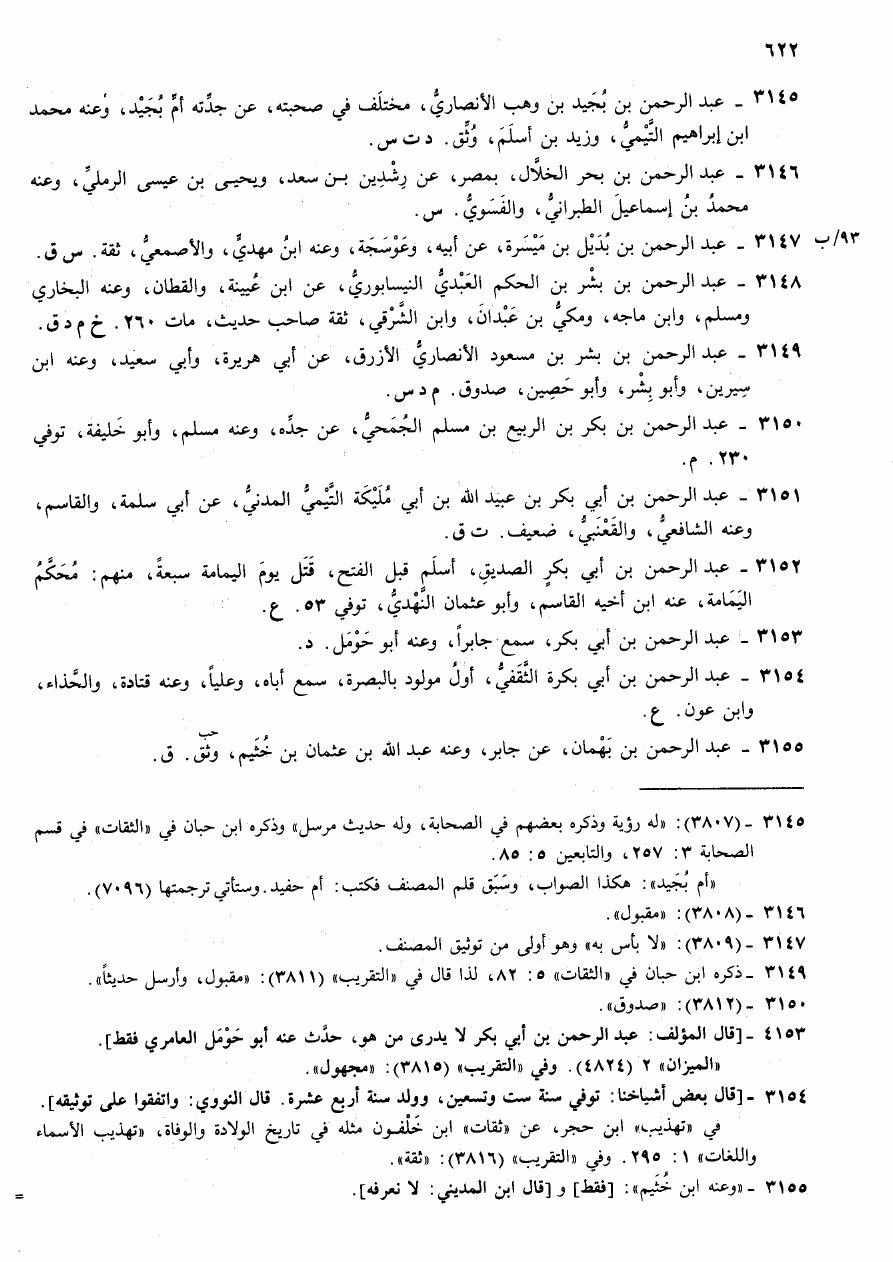 ٦٢٢
٣١٤٥ ـ عبد الرحمن بن بُجَيد بن وهب الأنصاريُّ، مختلَف في صحبته، عن جدِّته أمِّ بُجَيْد، وعنه محمد
ابن إبراهيم التَّيْميُّ، وزيد بن أسلَمَ، وُثِّق. د ت س.
٣١٤٦ ـ عبد الرحمن بن بحر الخلاَّل، بمصر، عن رِشْدِين بـن سعد، ويحيـى بن عيسى الرمليِّ، وعنه
محمدُ بنُ إسماعيلَ الطبرانيُّ، والفَسَويُّ. س.
٩٣/ب ٣١٤٧ ـ عبد الرحمن بن بُدَيْل بن مَيْسَرة، عن أبيه، وعَوْسَجَة، وعنه ابنُ مهديٍّ، والأصمعيُّ، ثقة. س ق.
٣١٤٨ ـ عبد الرحمن بن بشْر بن الحكم العَبْديُّ النيسابوريُّ، عن ابن عُيينة، والقطان، وعنه البخاري
ومسلم، وابن ماجه، ومكيُّ بن عَبْدانَ، وابن الشَّرْقي، ثقة صاحب حديث، مات ٢٦٠. خ م د ق.
٣١٤٩ ـ عبد الرحمن بن بشر بن مسعود الأنصاريُّ الأزرق، عن أبي هريرة، وأبي سعيد، وعنه ابن
سِيرين، وأبو بِشْر، وأبو حَصِين، صدوق. م د س.
٣١٥٠ ـ عبد الرحمن بن بكر بن الربيع بن مسلم الجُمَحيُّ، عن جدِّه، وعنه مسلم، وأبو خَليفة، توفي
٢٣٠. م.
٣١٥١ ـ عبد الرحمن بن أبي بكر بن عبيد الله بن أبي مُلَيْكَة التَّيْميُّ المدنيُّ، عن أبي سلمة، والقاسم،
وعنه الشافعيُّ، والقَعْنَبيُّ، ضعيف. ت ق.
٣١٥٢ ـ عبد الرحمن بن أبي بكرٍ الصديقِ، أسلَم قبل الفتح، قَتَل يومَ اليمامة سبعةً، منهم: مُحَكَّمُ
اليَمَامة، عنه ابن أخيه القاسم، وأبو عثمان النَّهْديُّ، توفي ٥٣. ع.
٣١٥٣ ـ عبد الرحمن بن أبي بكر، سمع جابراً، وعنه أبو حَوْمَل. د.
٣١٥٤ ـ عبد الرحمن بن أبي بكرة الثَّقَفيُّ، أولُ مولود بالبصرة، سمع أباه، وعلياً، وعنه قتادة، والحَّذاء،
وابن عون. ع.
٣١٥٥ ـ عبد الرحمن بن بَهْمان، عن جابر، وعنه عبد الله بن عثمان بن خُثَيم، وثق. ق. حب
٣١٤٥ ـ (٣٨٠٧): «له رؤية وذكره بعضهم في الصحابة، وله حديث مرسل» وذكره ابن حبان في «الثقات» في قسم
الصحابة ٣: ٢٥٧، والتابعين ٥: ٨٥.
«أم بُجَيد»: هكذا الصواب، وسَبَق قلم المصنف فكتب: أم حفيد. وستأتي ترجمتها (٧٠٩٦).
٣١٤٦ ـ (٣٨٠٨): «مقبول».
٣١٤٧ ـ (٣٨٠٩): «لا بأس به» وهو أولى من توثيق المصنف.
٣١٤٩ ـ ذكره ابن حبان في «الثقات» ٥: ٨٢، لذا قال في «التقريب» (٣٨١١): «مقبول، وأرسل حديثاً».
٣١٥٠ ـ (٣٨١٢): «صدوق».
٤١٥٣ ـ [قال المؤلف: عبد الرحمن بن أبي بكر لا يدرى من هو، حدَّث عنه أبو حَوْمَل العامري فقط].
«الميزان» ٢ (٤٨٢٤). وفي «التقريب» (٣٨١٥): «مجهول».
٣١٥٤ ـ [قال بعض أشياخنا: توفي سنة ست وتسعين، وولد سنة أربع عشرة. قال النووي: واتفقوا على توثيقه].
في «تهذيب» ابن حجر، عن «ثقات» ابن خَلْفـون مثله في تاريخ الولادة والوفاة، «تهذيب الأسماء
واللغات» ١: ٢٩٥. وفي «التقريب» (٣٨١٦): «ثقة».
٣١٥٥ ـ «وعنه ابن خُثَيم»: [فقط] و [قال ابن المديني: لا نعرفه].
=